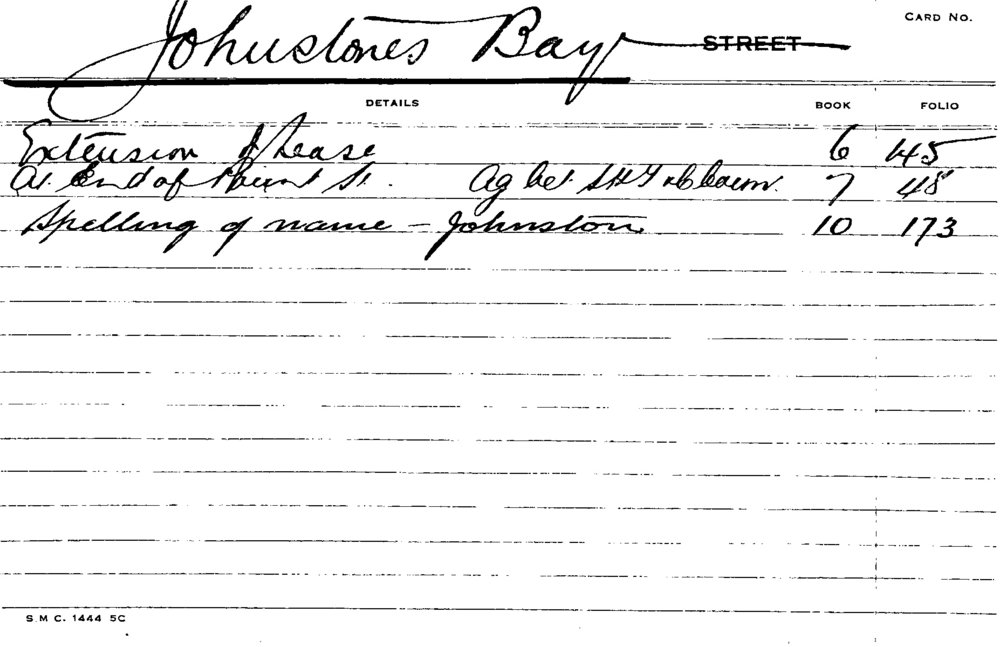 CARD NO.
Johnstones Bay STREET
DETAILS BOOK FOLIO
Extension of Lease 6 45
At End of Point St. Ag bet. SHT & C Coun. 7 48
Spelling of name - Johnston 10 173
S.M.C. 1444 5C